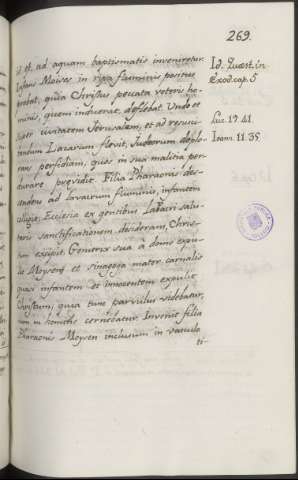 269.
id est, ad aquam baptismatis inveniretur
Infans Moises in ripa fluminis positus
quia Christus peccata veteris ho-
minis, quem induerat, deflebat. Unde et
super civitatem Jerusalem, et ad resusci-
tandum Lazarum flevit, Judeorum deplo-
rans perfidiam, quos in sua malitia per-
durare previdit. Filia Pharaonis des-
cendens ad lavacrum fluminis, infantem
colligit; Ecclesia ex gentibus Lavacri salu-
taris sanctificationem desiderans, Chris-
tum excipit. Genitrix sua a domo expu-
lit Moysem; et sinagoga mater carnalis
quasi infantem et innocentem expulit
Christum, quia tunc parvulus videbatur,
cum in homine cernebatur. Invenit filia
Pharaonis Moysen inclusum in vascula
ti-
Id. Quest. in
Exod. cap. 5
Luc. 19. 41.
Ioann. 11. 35